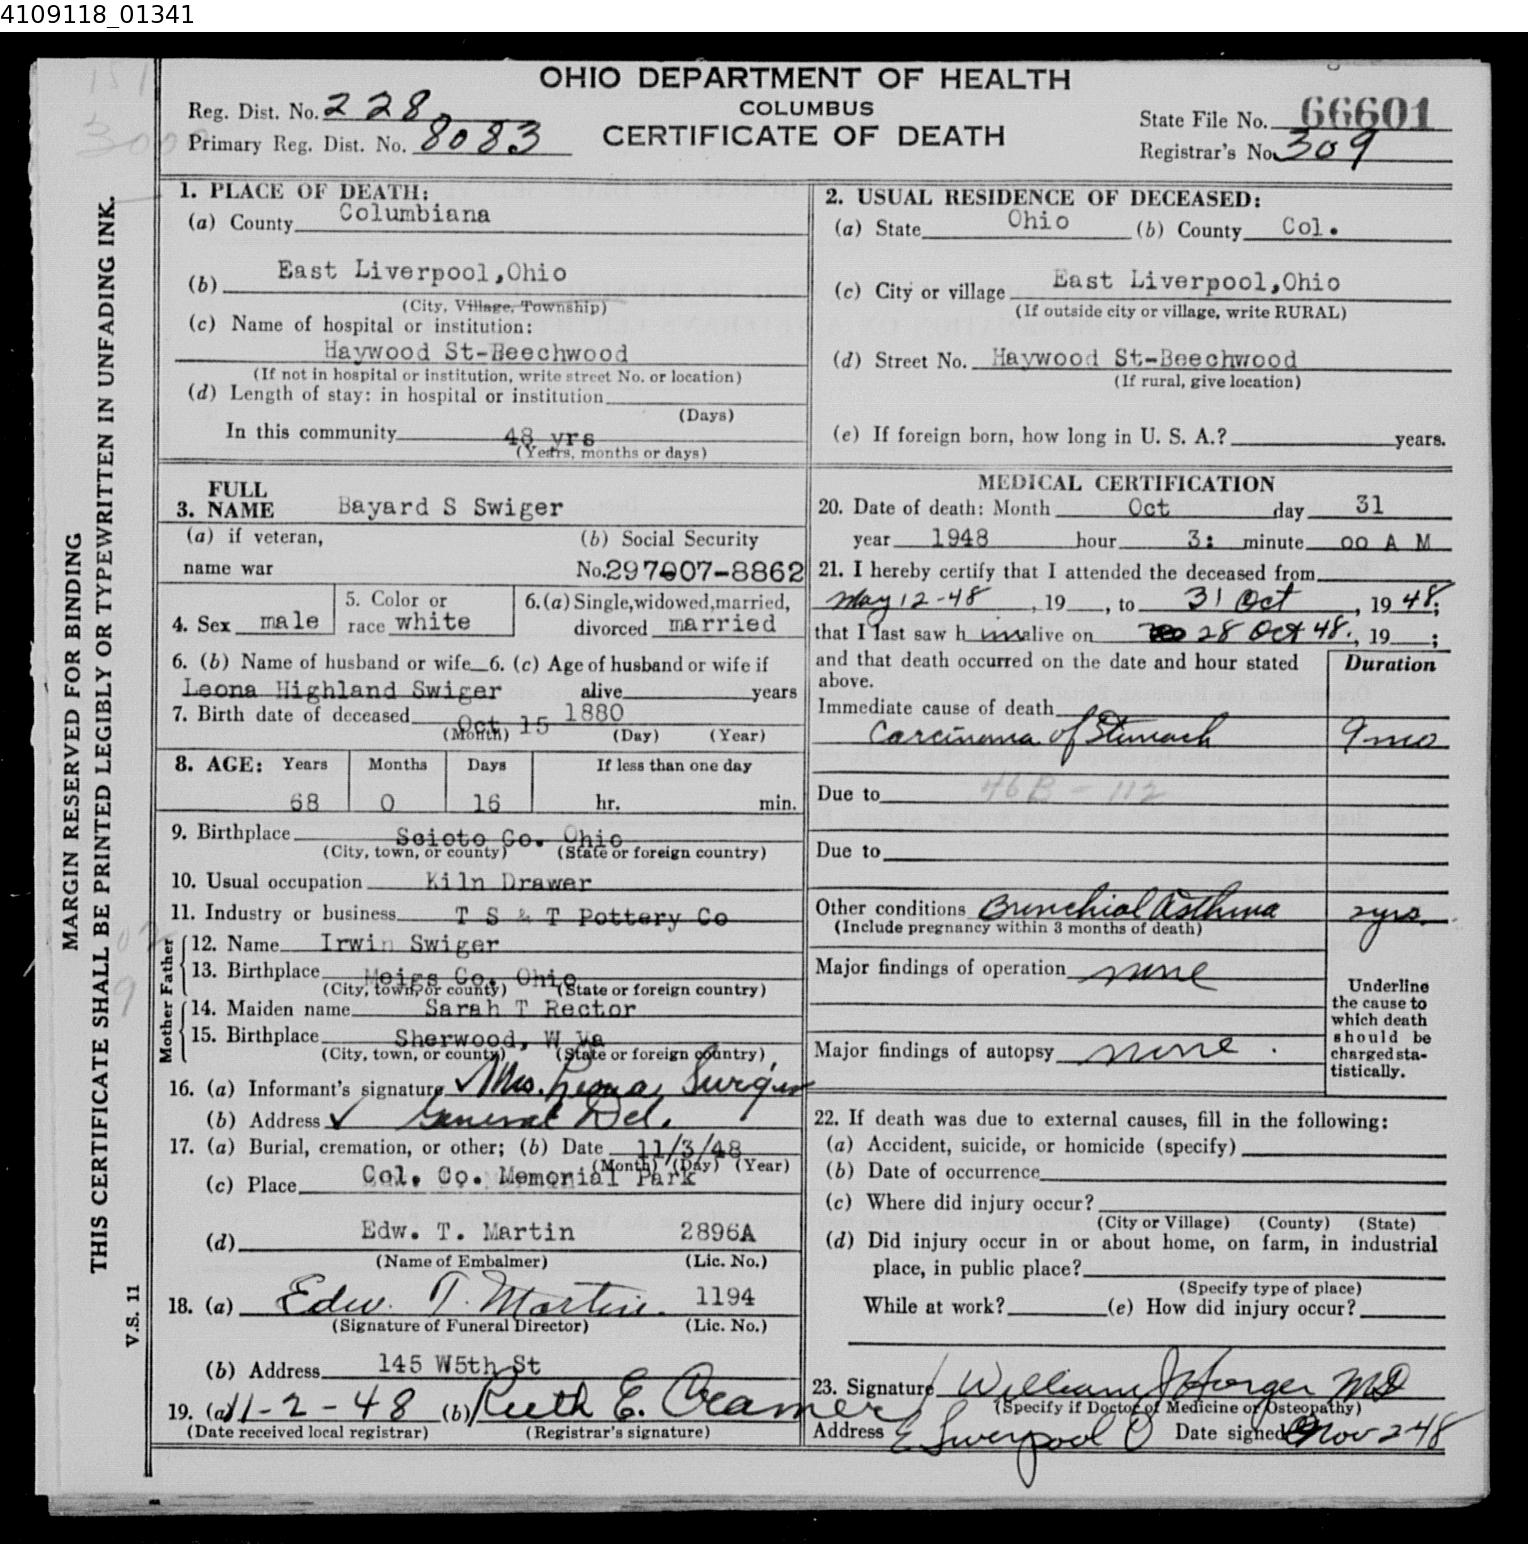 4109118_01341
OHIO DEPARTMENT OF HEALTH
COLUMBUS
CERTIFICATE OF DEATH
Reg. Dist. No. 228
Primary Reg. Dist. No. 8083
State File No. 66601
Registrar's No. 309
MARGIN RESERVED FOR BINDING
THIS CERTIFICATE SHALL BE PRINTED LEGIBLY OR TYPEWRITTEN IN UNFADING INK.
V.S. 11
1. PLACE OF DEATH:
(a) County Columbiana
(b) East Liverpool,Ohio
(City, Village, Township)
(c) Name of hospital or institution:
Haywood St-Beechwood
(If not in hospital or institution, write street No. or location)
(d) Length of stay: in hospital or institution
(Days)
In this community 48 yrs
(Years, months or days)
2. USUAL RESIDENCE OF DECEASED:
(a) State Ohio (b) County Col.
(c) City or village East Liverpool,Ohio
(If outside city or village, write RURAL)
(d) Street No. Haywood St-Beechwood
(If rural, give location)
(e) If foreign born, how long in U. S. A.? years.
3. FULL NAME Bayard S Swiger
(a) if veteran, name war
(b) Social Security No. 297-07-8862
4. Sex male
5. Color or race white
6. (a) Single, widowed, married, divorced married
6. (b) Name of husband or wife 6. (c) Age of husband or wife if
Leona Highland Swiger alive years
7. Birth date of deceased Oct 15 1880
(Month) (Day) (Year)
8. AGE: Years Months Days If less than one day
68 0 16 hr. min.
9. Birthplace Scioto Co. Ohio
(City, town, or county) (State or foreign country)
10. Usual occupation Kiln Drawer
11. Industry or business T S & T Pottery Co
Father
12. Name Irwin Swiger
13. Birthplace Meigs Co. Ohio
(City, town, or county) (State or foreign country)
Mother
14. Maiden name Sarah T Rector
15. Birthplace Sherwood, W Va
(City, town, or county) (State or foreign country)
16. (a) Informant's signature Mrs. Leona Swiger
(b) Address General Del.
17. (a) Burial, cremation, or other; (b) Date 11/3/48
(Month) (Day) (Year)
(c) Place Col. Co. Memorial Park
(d) Edw. T. Martin 2896A
(Name of Embalmer) (Lic. No.)
18. (a) Edw. T. Martin 1194
(Signature of Funeral Director) (Lic. No.)
(b) Address 145 W5th St
19. (a) 11-2-48 (b) Ruth E. Cramer
(Date received local registrar) (Registrar's signature)
MEDICAL CERTIFICATION
20. Date of death: Month Oct day 31
year 1948 hour 3: minute 00 A M
21. I hereby certify that I attended the deceased from
May 12-48, 19 , to 31 Oct, 1948;
that I last saw h im alive on 28 Oct 48., 19 ;
and that death occurred on the date and hour stated above.
Duration
Immediate cause of death
Carcinoma of Stomach 9 mo
Due to 46B - 112
Due to
Other conditions Bronchial Asthma 2 yrs.
(Include pregnancy within 3 months of death)
Major findings of operation none
Major findings of autopsy none.
Underline the cause to which death should be charged statistically.
22. If death was due to external causes, fill in the following:
(a) Accident, suicide, or homicide (specify)
(b) Date of occurrence
(c) Where did injury occur?
(City or Village) (County) (State)
(d) Did injury occur in or about home, on farm, in industrial
place, in public place?
(Specify type of place)
While at work? (e) How did injury occur?
23. Signature William J Horger MD
(Specify if Doctor of Medicine or Osteopathy)
Address E Liverpool O Date signed Nov 2-48